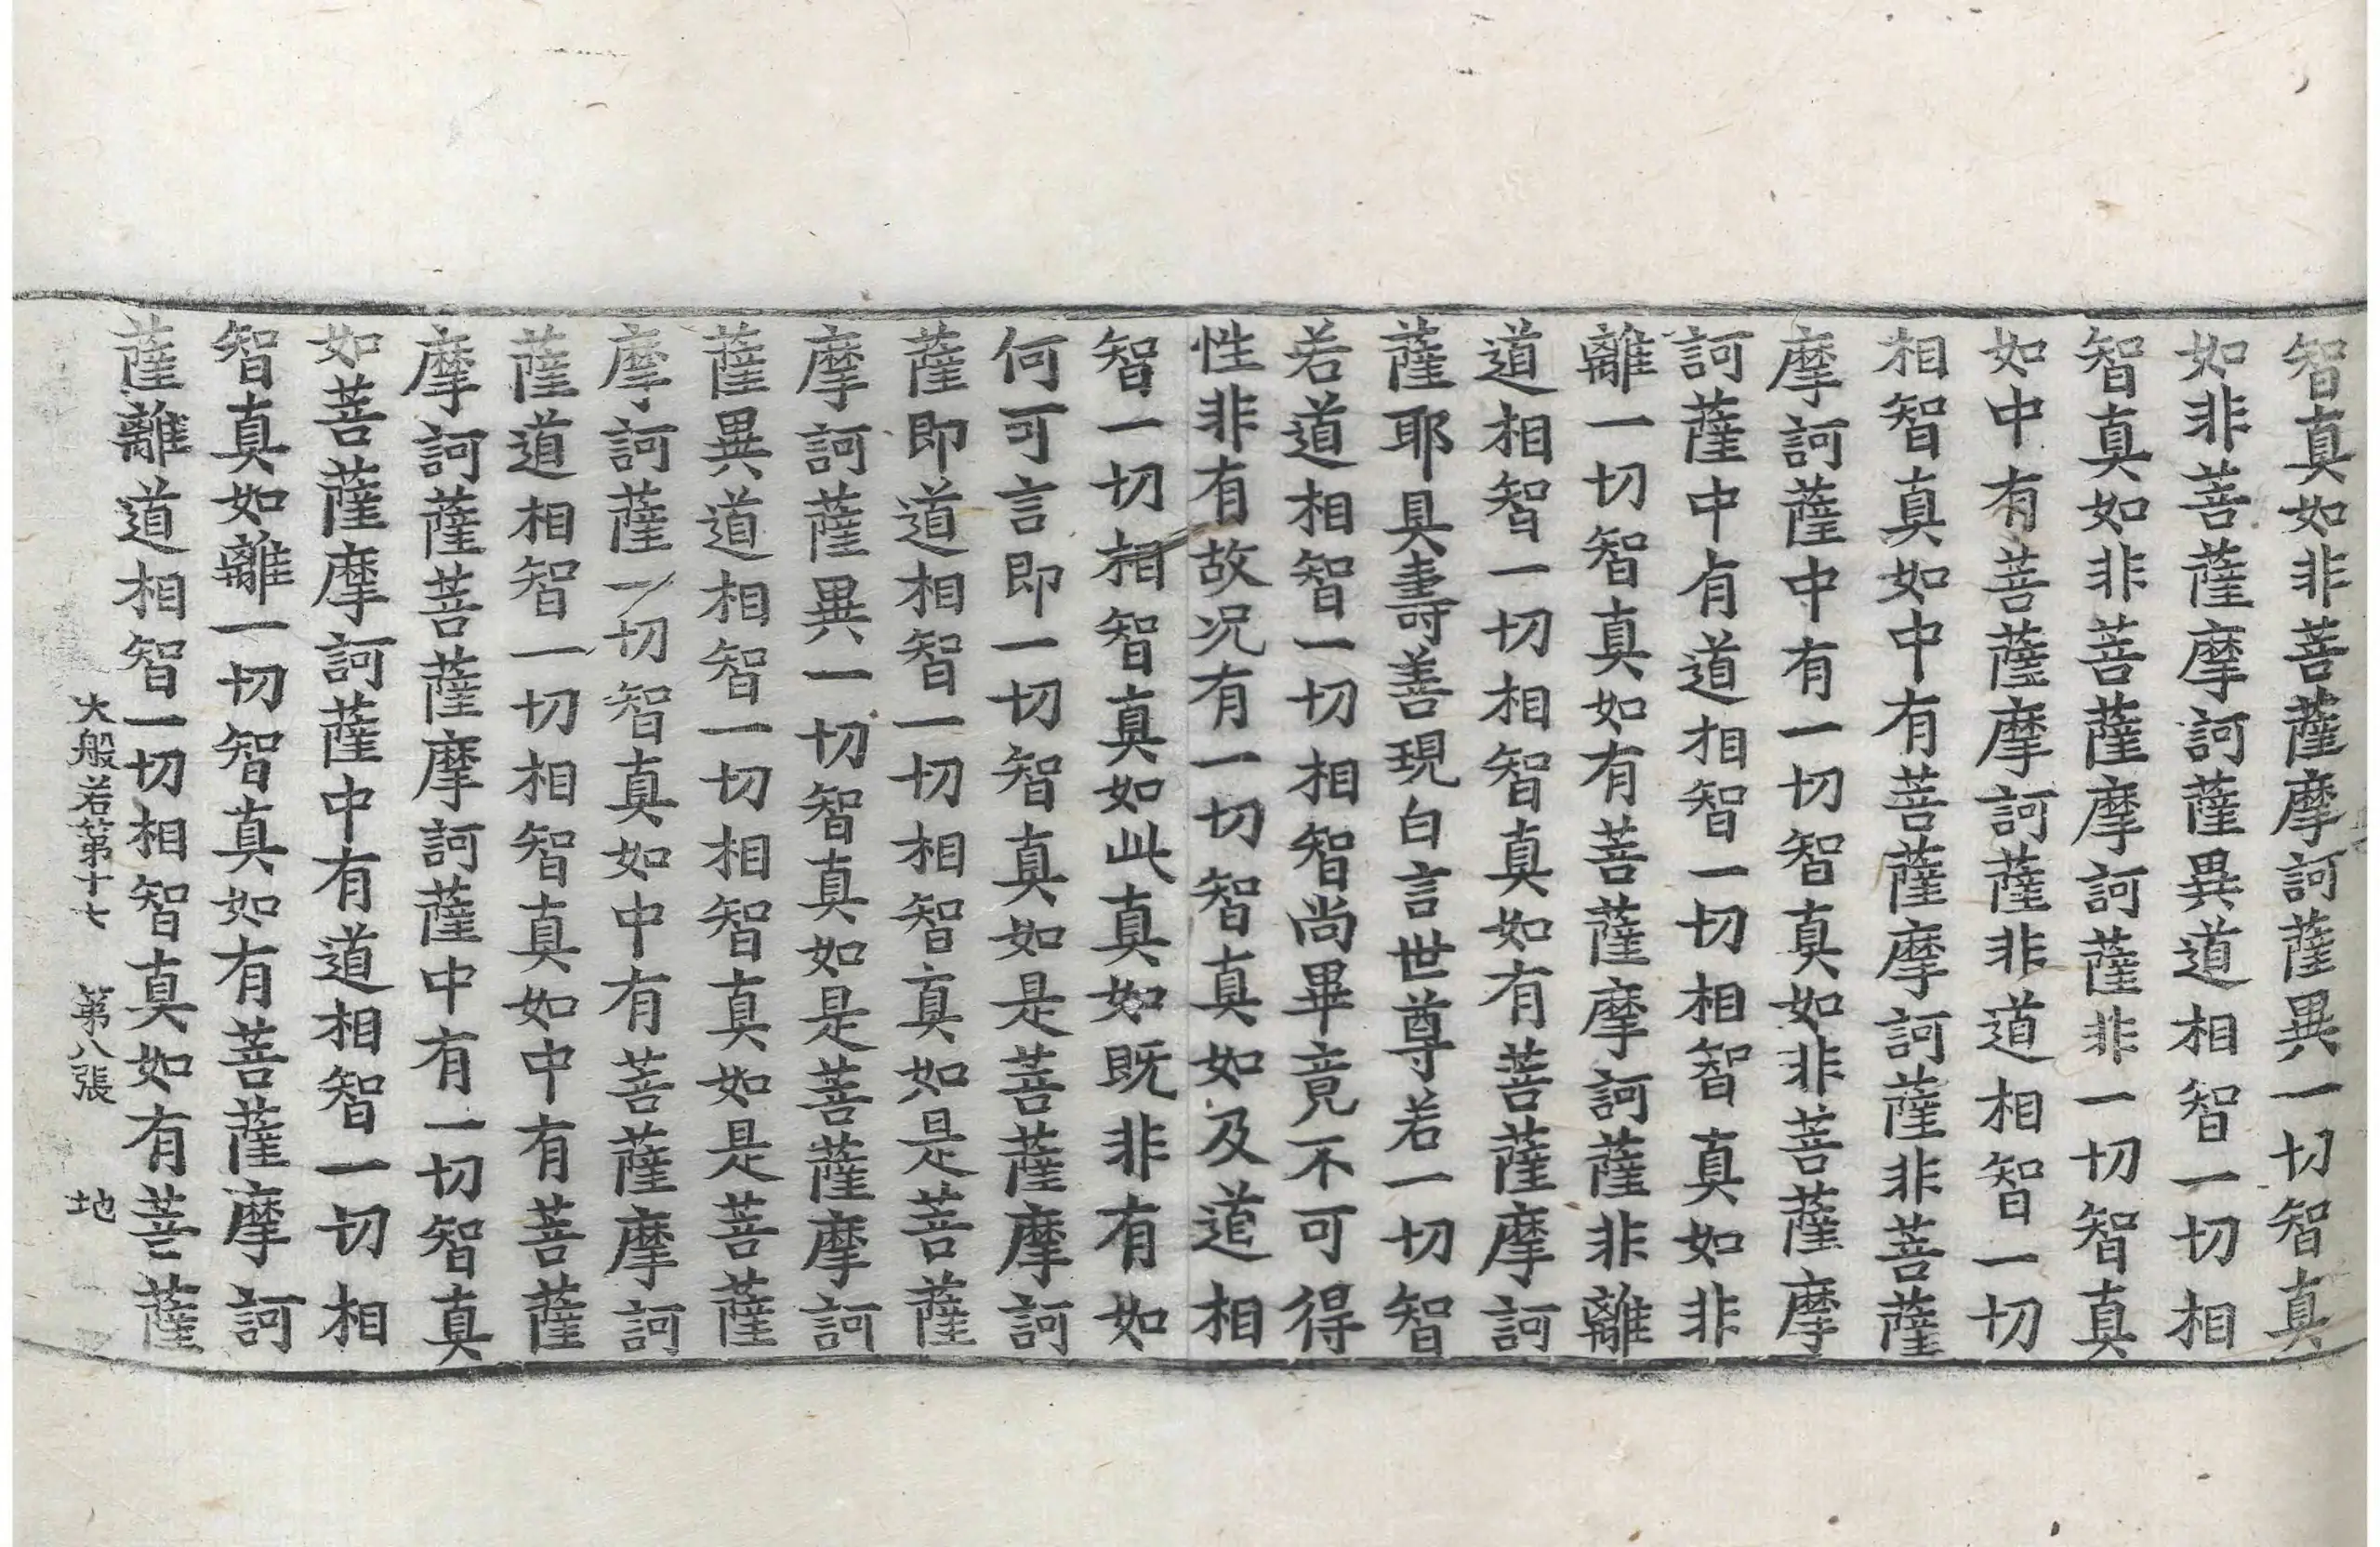 智真如非菩薩摩訶薩異一切智真
如非菩薩摩訶薩異道相智一切相
智真如非菩薩摩訶薩非一切智真
如中有菩薩摩訶薩非道相智一切
相智真如中有菩薩摩訶薩非菩薩
摩訶薩中有一切智真如非菩薩摩
訶薩中有道相智一切相智真如非
離一切智真如有菩薩摩訶薩非離
道相智一切相智真如有菩薩摩訶
薩耶具壽善現白言世尊若一切智
若道相智一切相智尚畢竟不可得
性非有故况有一切智真如及道相
智一切相智真如此真如既非有如
何可言即一切智真如是菩薩摩訶
薩即道相智一切相智真如是菩薩
摩訶薩異一切智真如是菩薩摩訶
薩異道相智一切相智真如是菩薩
摩訶薩一切智真如中有菩薩摩訶
薩道相智一切相智真如中有菩薩
摩訶薩菩薩摩訶薩中有一切智真
如菩薩摩訶薩中有道相智一切相
智真如離一切智真如有菩薩摩訶
薩離道相智一切相智真如有菩薩
大般若第十七 第八張 地